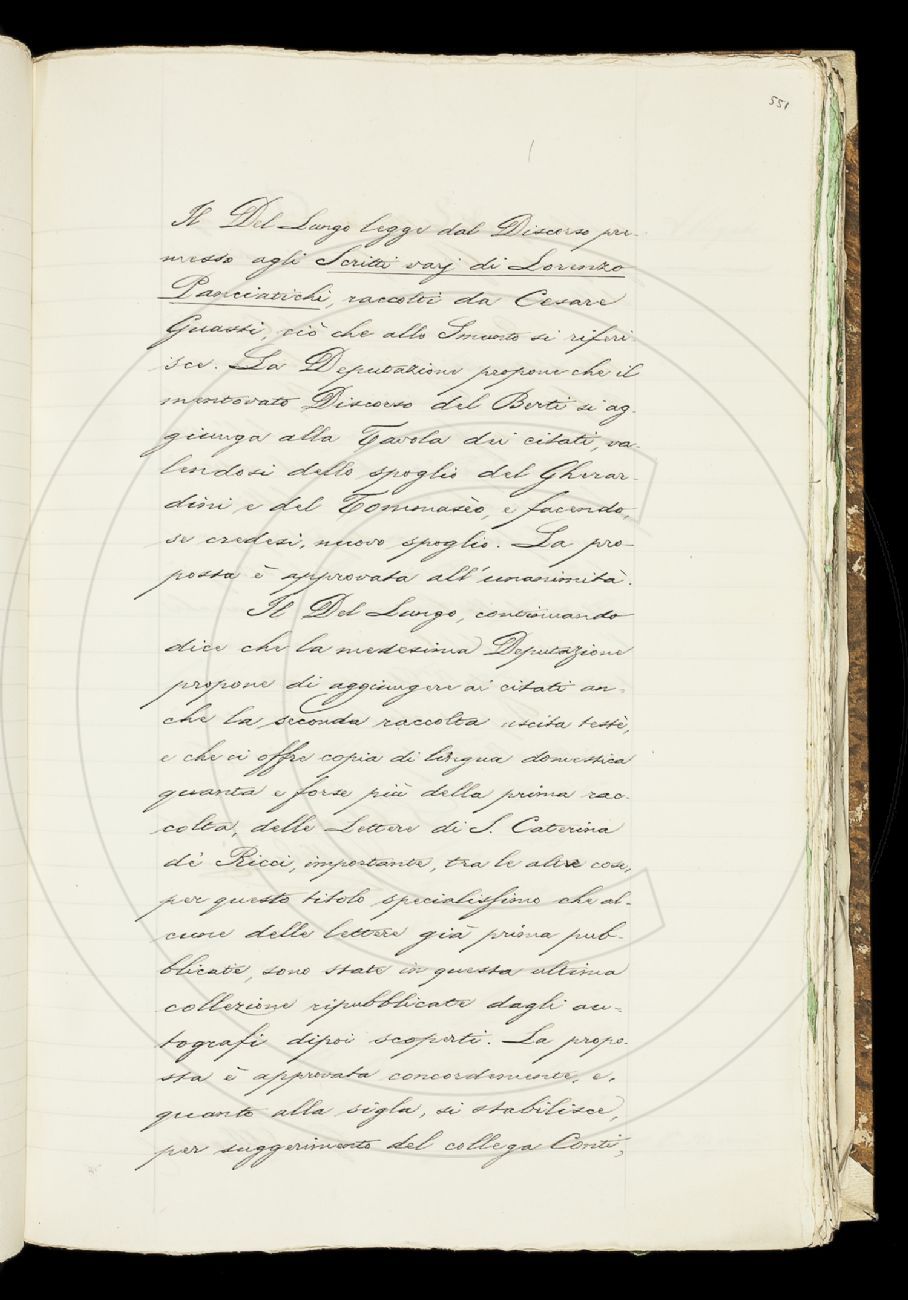 551
Il Del Lungo legge dal Discorso pre-
messo agli Scritti varj di Lorenzo
Panciatichi, raccolti da Cesare
Guasti, ciò che allo Smunto si riferi-
sce. La Deputazione propone che il
mentovato Discorso del Berti si ag-
giunga alla Tavola dei citati, va-
lendosi dello spoglio del Gherar-
dini e del Tommasèo, e facendo,
se credesi, nuovo spoglio. La pro-
posta è approvata all'unanimità.
Il Del Lungo, continuando
dice che la medesima Deputazione
propone di aggiungere ai citati an-
che la seconda raccolta uscita testè,
e che ci offre copia di lingua domestica
quanta e forse più della prima rac-
colta, delle Lettere di S. Caterina
de' Ricci, importante, tra le altre cose,
per questo titolo specialissimo che al-
cune delle lettere già prima pub-
blicate, sono state in questa ultima
collezione ripubblicate dagli au-
tografi dipoi scoperti. La propo-
sta è approvata concordemente, e,
quanto alla sigla, si stabilisce,
per suggerimento del collega Conti,